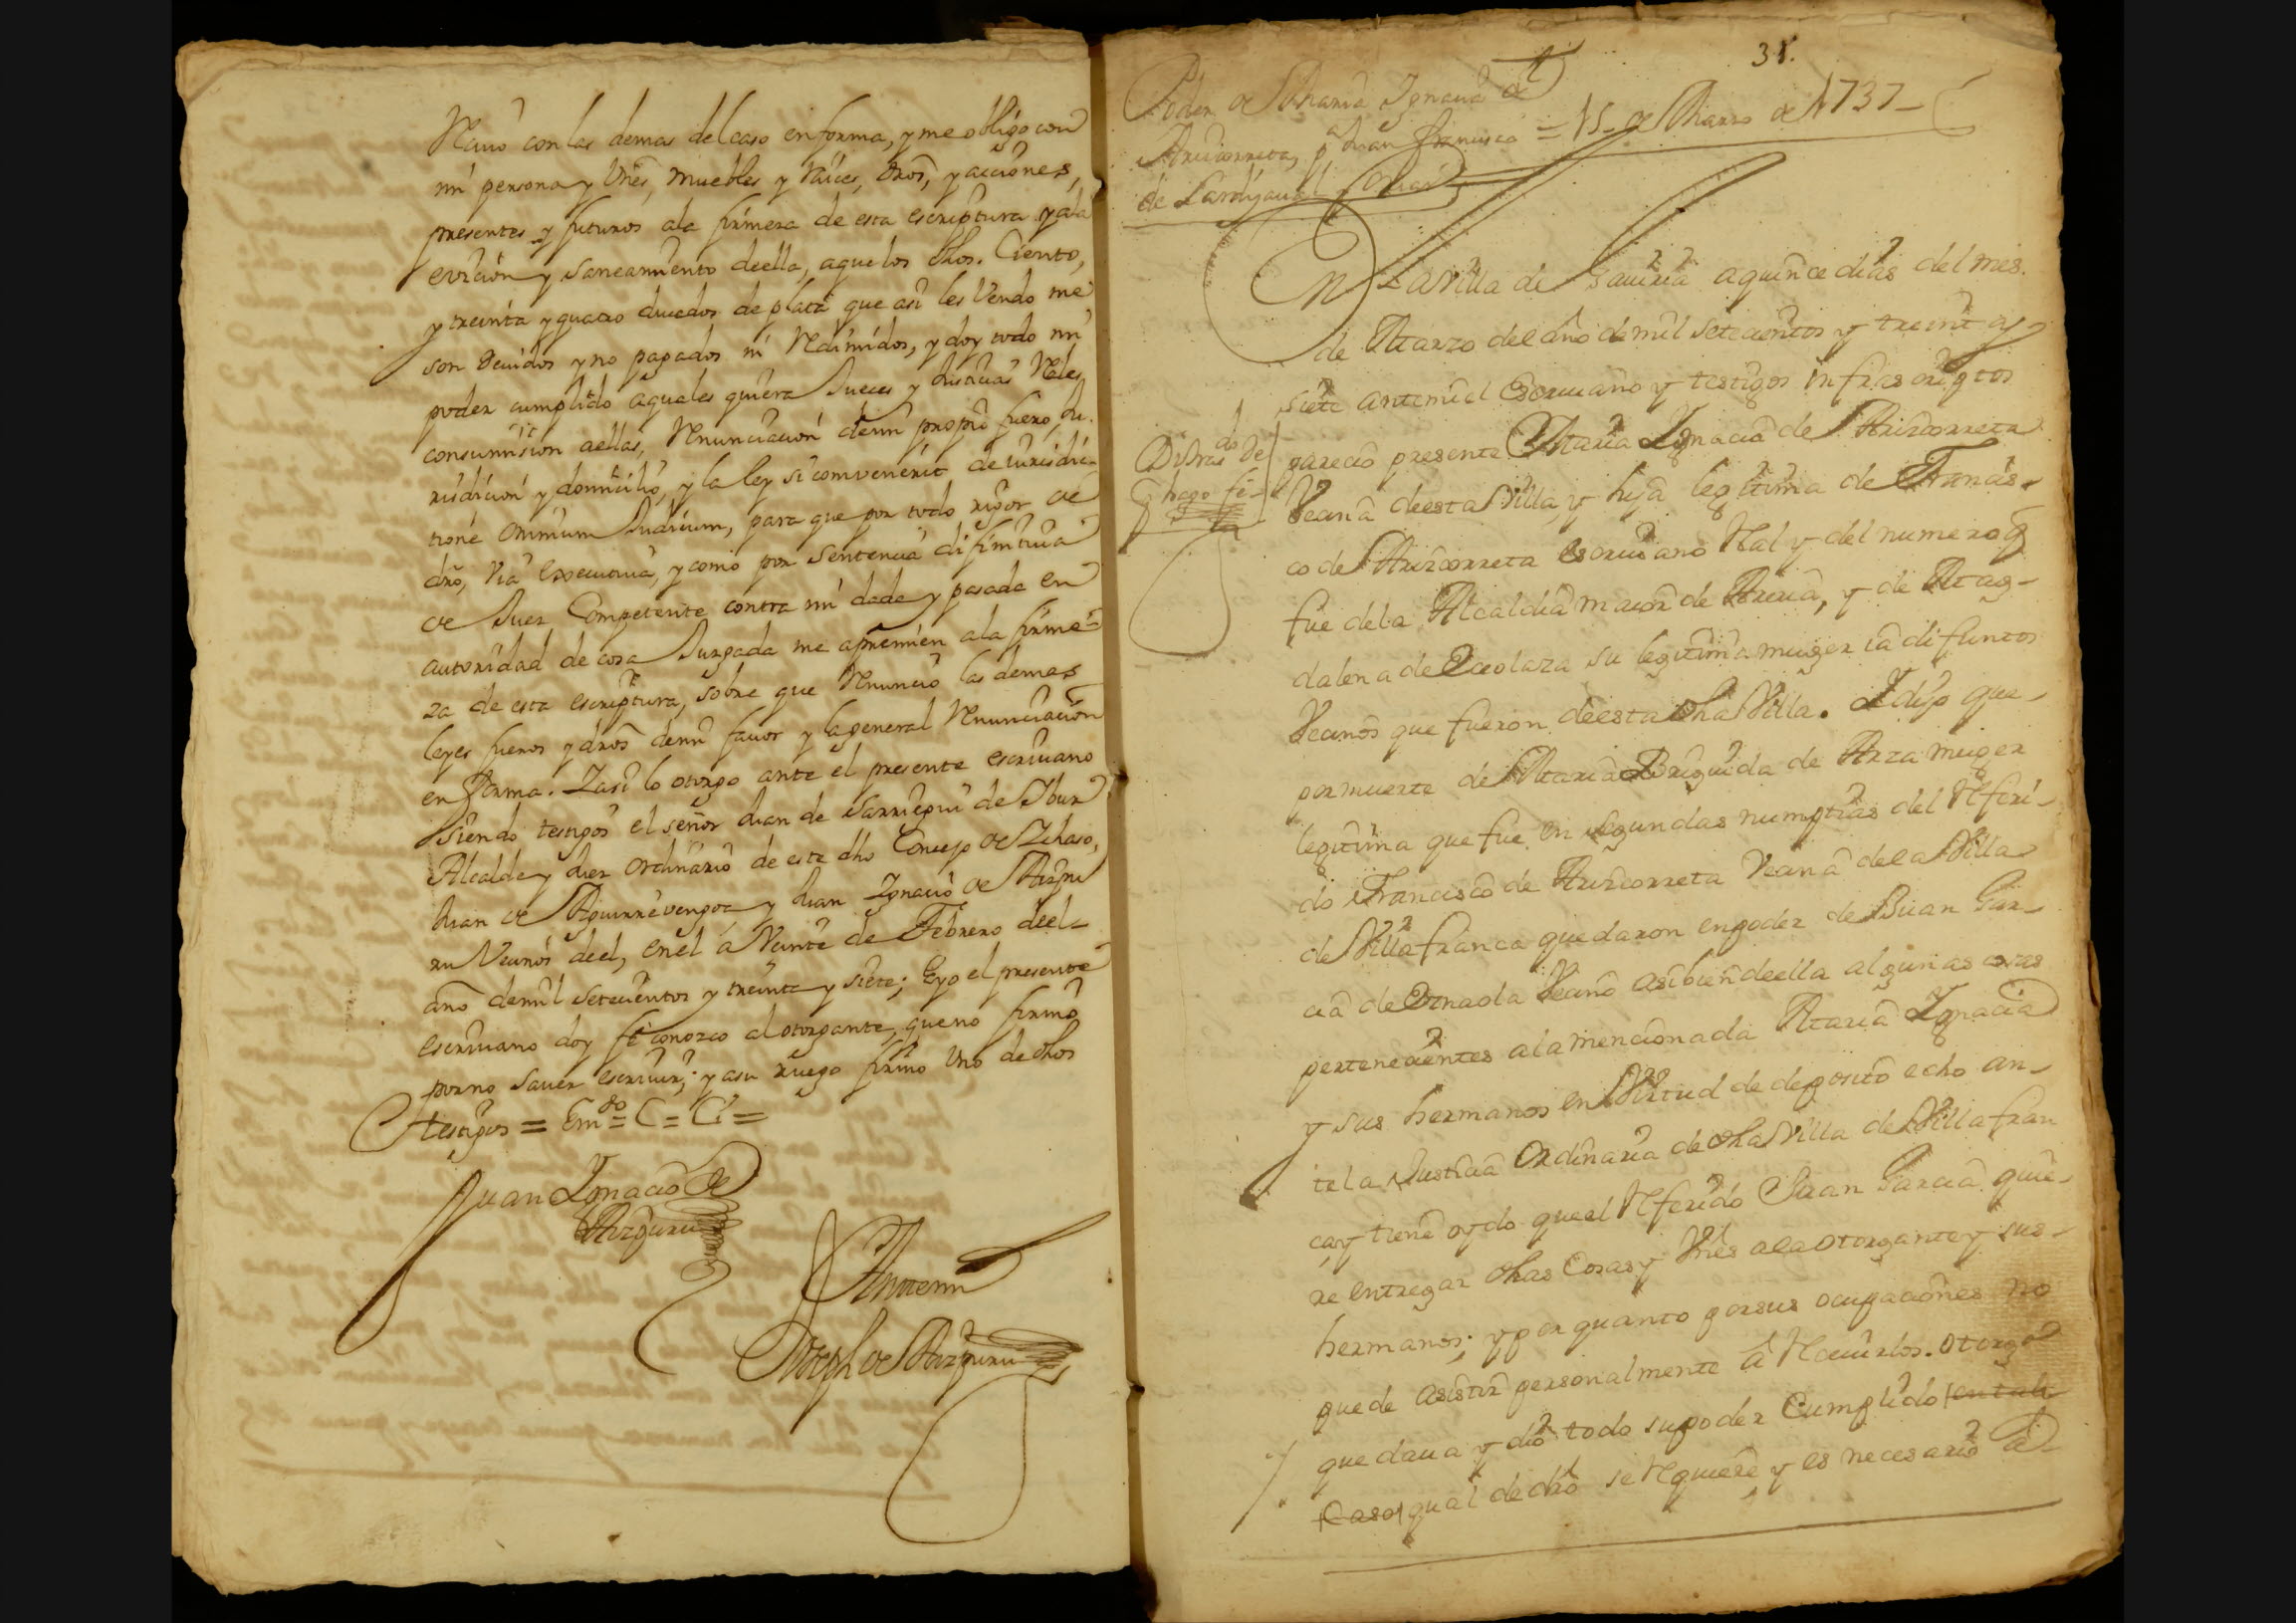 Nauo con las demas del caso en forma, y me obligo con
mi persona y Vnēs, muebles y raices, dros, y acciones,
presentes y futuros ala firmeza de esta escriptura y ala
eviciōn y saneamiento deella, aque los dhos. Ciento,
y treinta y quatro ducados de plata que asi les Vendo me
son Devidos y no pagados ni Redimidos, y doy todo mi
poder cumplido aquales quiera Jueces y Justicias Rales
consumision aellas, Renunciacion demi propio fuero, Ju-
risdicion y domicilio, y la ley si convenerit de iurisdic-
tione Omnium Judicum, para que por todo rigor de
dro, Via executiva, y como por sentencia difinitiva
de Juez Competente contra mi dada y pasada en
autoridad de cosa Juzgada me apremien ala firme-
za de esta escriptura, sobre que Renuncio las demas
leyes fueros y dros demi favor y la general Renunciacion
en forma. Y asi lo otorgo ante el presente escrivano
siendo testigos el señor Juan de Sarriegui de Ybur
Alcalde y Juez Ordinario de este dho Concejo de Zihaso,
Juan de Aguirrevengoa y Juan Ygnacio de Aizpu
ru Vecinos deel, enel a Veinte de Febrero deel
año demil setecientos y treinta y siete; Eyo el presente
escrivano doy fe conozco al otorgante, que no firmo
porno saver escrivir; y asu ruego firmo Uno de dhos
testigos = Em.do = C = Ci =
Juan Ygnacio de
Aizpuru
Antemi
Joseph de Aizpuru
31.
Poder de Maria Ygnacia de
Arizcorreta, pa Juan Francisco = 15 de Marzo de 1737
de Lardizaual
En La Villa de Gauiria aquince dias del mes
de Marzo del año de mil setecientos y treinta y
siete antemi el Escriuano y testigos infrascriptos
parecio presente Maria Ygnacia de Arizcorreta
Vecina deesta Villa, y hija legitima de Francis-
co de Arizcorreta escriuano Ral y del numero q
fue dela Alcaldia maior de Areria, y de Mag-
dalena de Eceolaza su legitima muger ia difuntos
Vecinos que fueron deesta dha Villa. Y dijo que
pormuerte de Maria Brigida de Arza muger
legitima que fue en segundas numptias del Referi-
do Francisco de Arizcorreta Vecina dela Villa
de Villafranca quedaron enpoder de Juan Gar-
cia de Ornaola Vecino asibien deella algunas cosas
pertenecientes ala mencionada Maria Ygnacia
y sus hermanos en Virtud de deposito echo an-
te la Justicia Ordinaria de dha Villa de Villafran
ca, y tiene oydo que el Referido Juan Garcia quie-
re entregar dhas Cosas y Vnēs ala otorgante y sus
hermanos; y por quanto porsus ocupaciones no
puede asistir personalmente a Receuirlos. Otorgo
que daua y dio todo supoder Cumplido en tal
Caso qual de dro se Requiere y es necesario a
do
Distras De
q hago fe